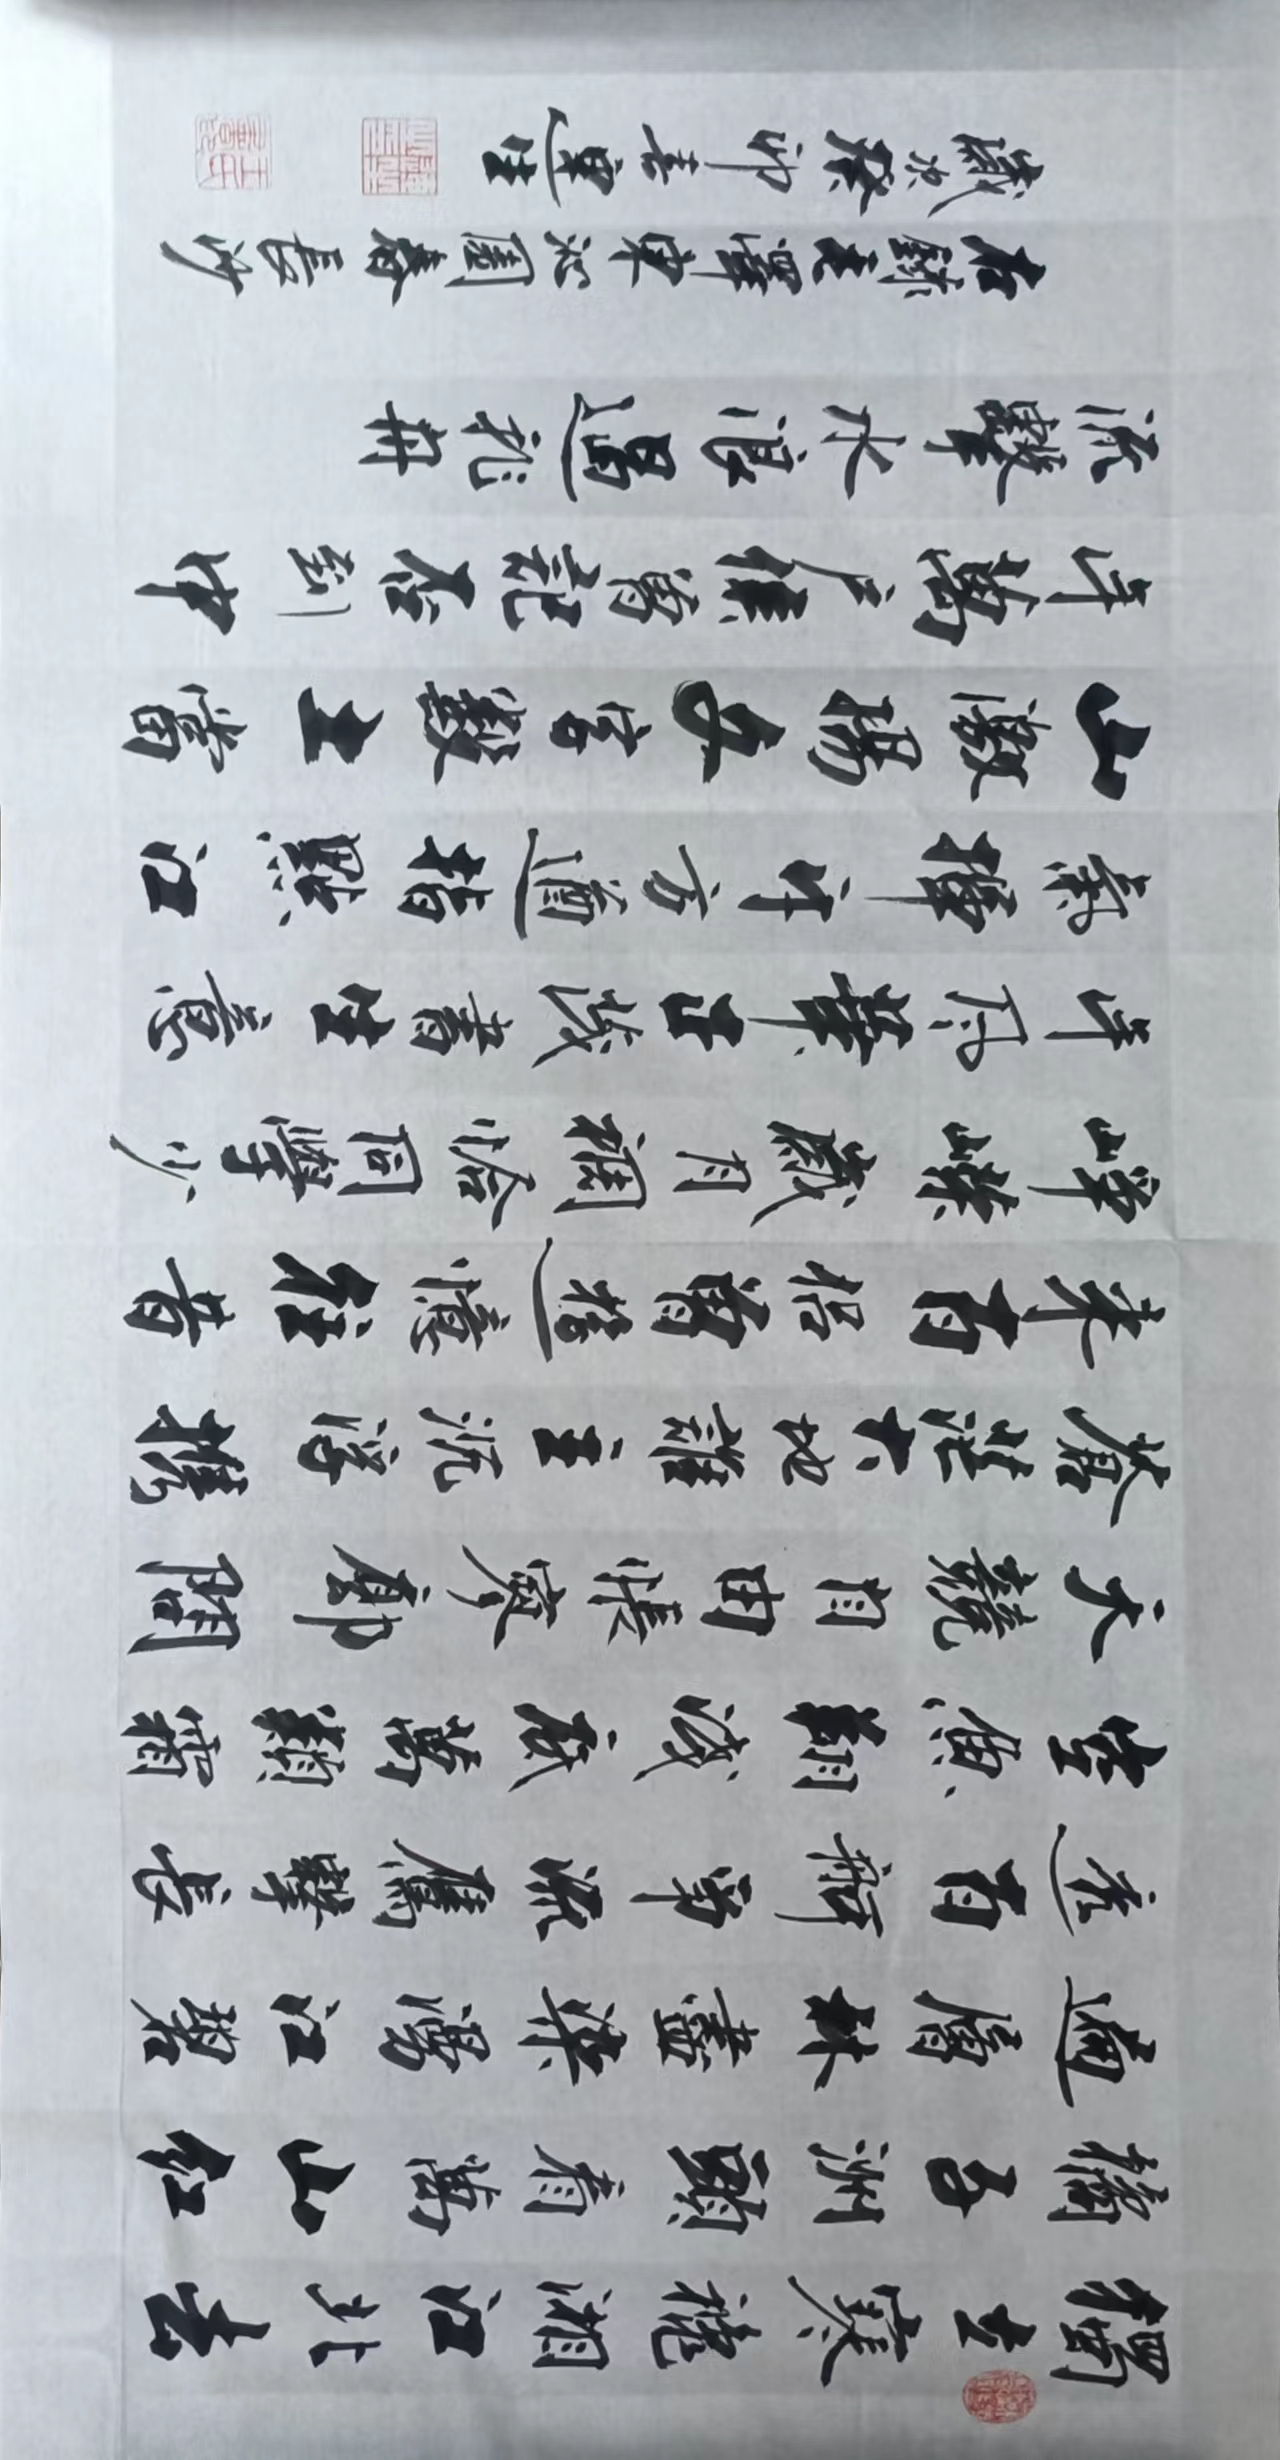 獨立寒秋湘江北去
橘子洲頭看萬山紅
遍層林盡染漫江碧
透百舸爭流鷹擊長
空魚翔淺底萬類霜
天競自由悵寥廓問
蒼茫大地誰主沉浮攜
來百侶曾遊憶往昔
崢嶸歲月稠恰同學少
年風華正茂書生意
氣揮斥方遒指點江
山激揚文字糞土當
年萬戶侯曾記否到中
流擊水浪遏飛舟
右錄毛澤東沁園春長沙
歲次癸卯春運生